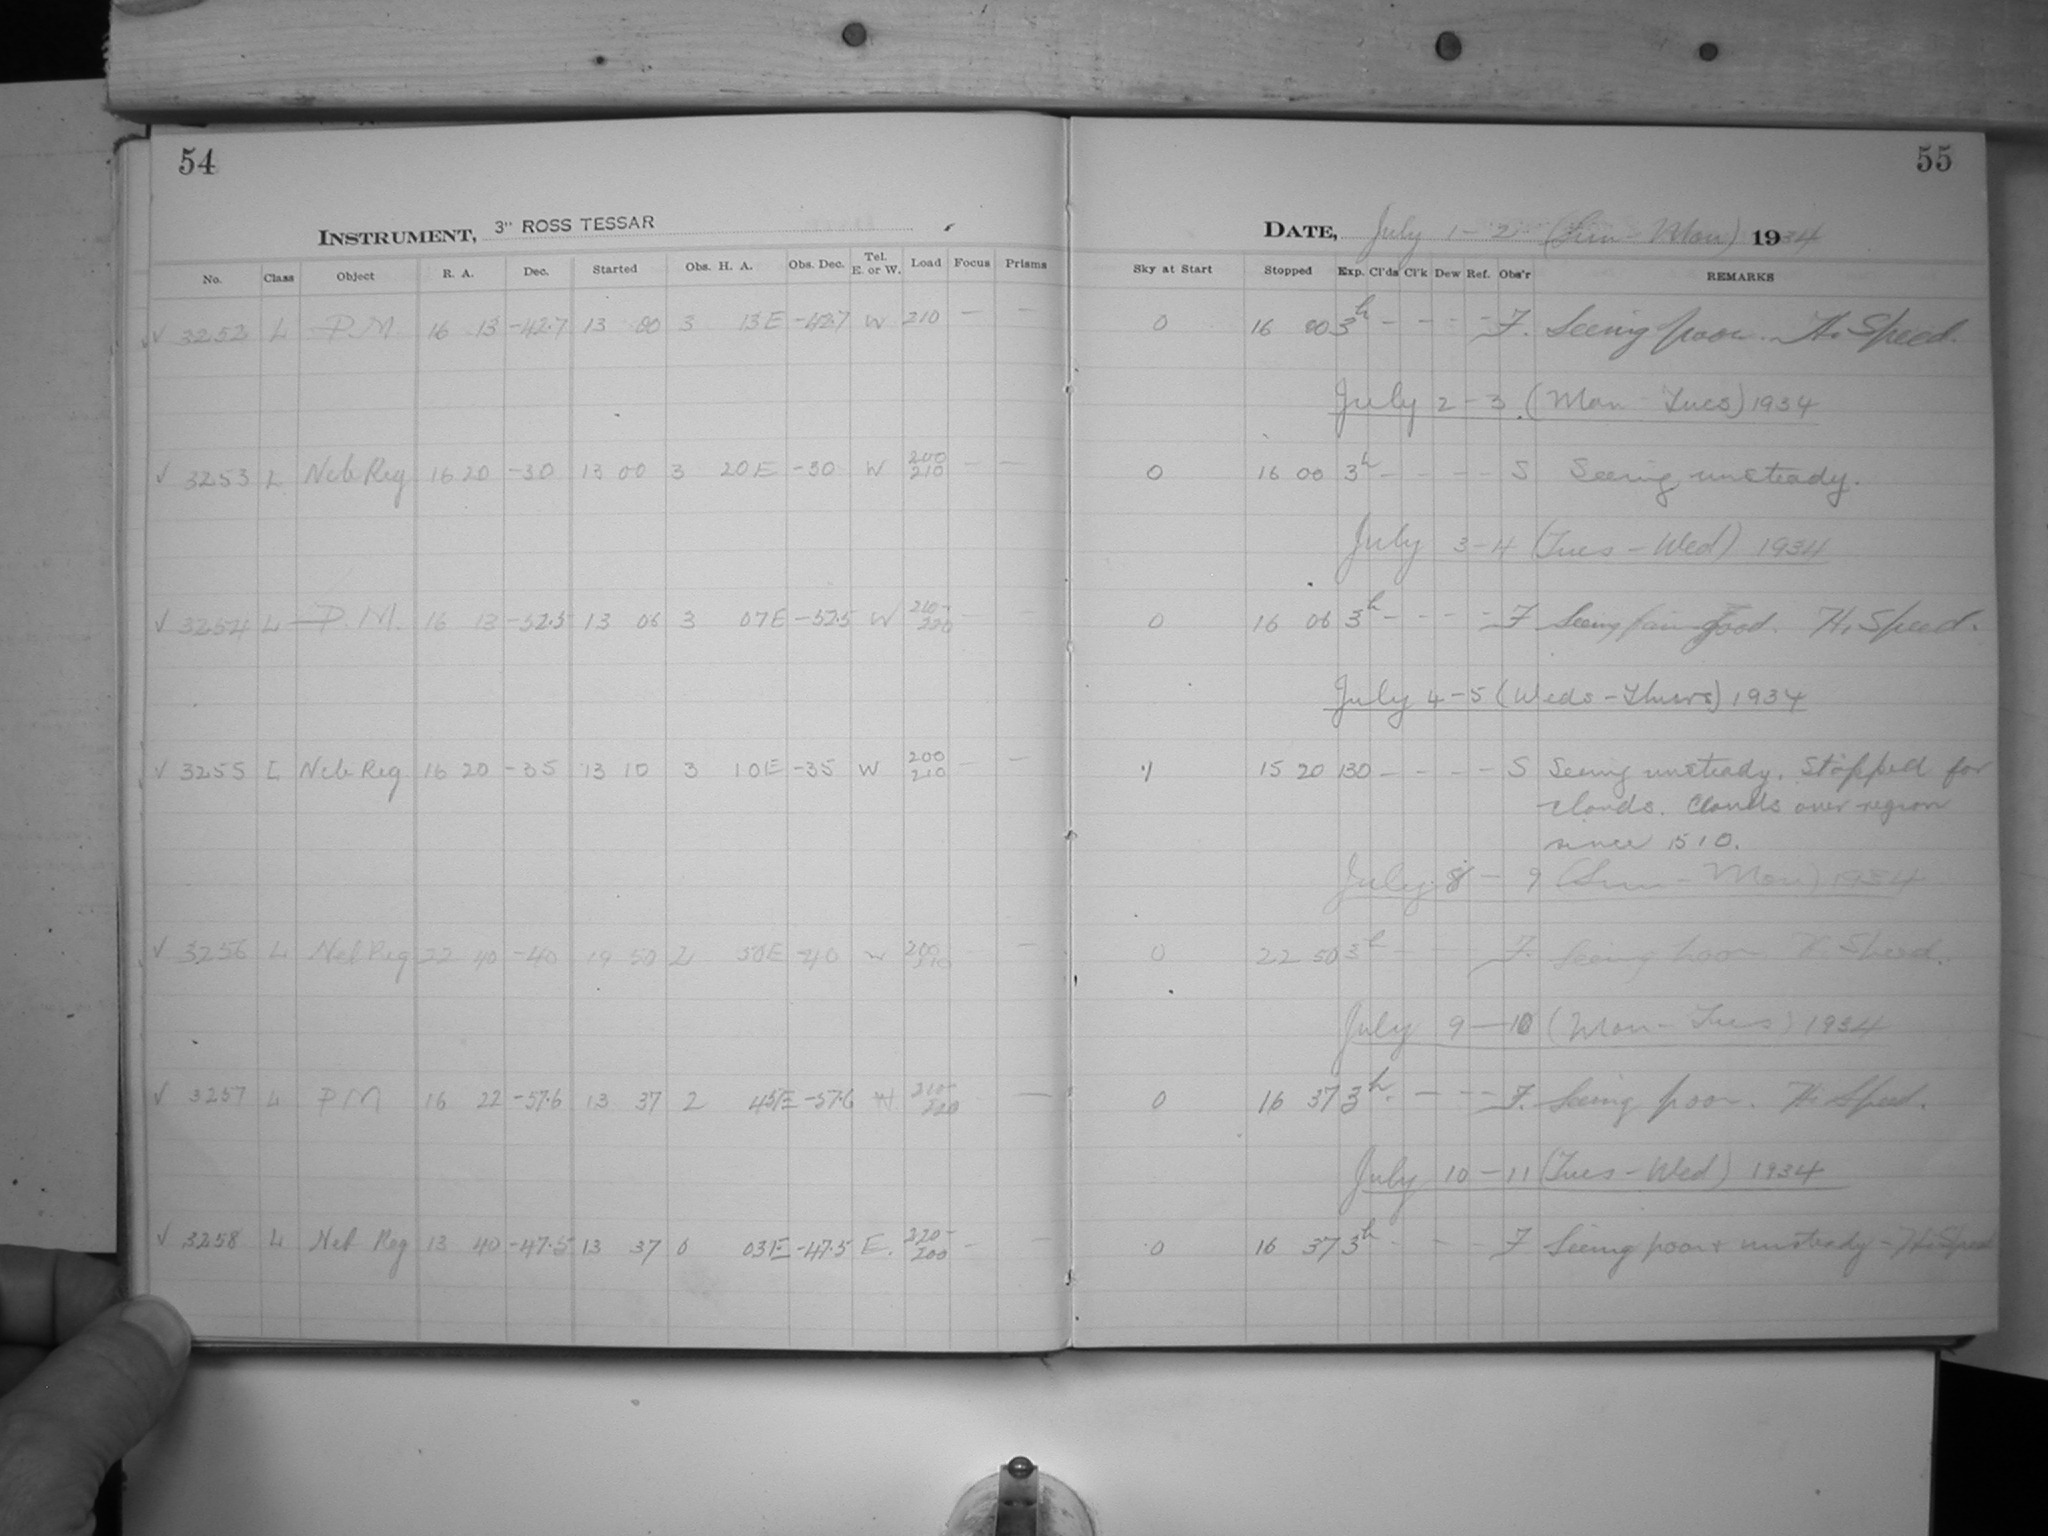 54
INSTRUMENT, 3" ROSS TESSAR
No. Class Object R. A. Dec. Started Obs. H. A. Obs. Dec. Tel. E. or W. Load Focus Prisms
✓ 3252 L P.M. 16 13 -42.7 13 00 3 13 E -42.7 W 210 — —
✓ 3253 L Neb Reg 16 20 -30 13 00 3 20 E -30 W 200 210 — —
✓ 3254 L P.M. 16 13 -52.5 13 06 3 07 E -52.5 W 210- 220 — —
✓ 3255 L Neb Reg 16 20 -35 13 10 3 10 E -35 W 200 210 — —
✓ 3256 L Neb Reg 22 40 -40 19 50 2 50 E -40 W 200 210 —
✓ 3257 L PM 16 22 -57.6 13 37 2 45 E -57.6 W 210- 220 —
✓ 3258 L Neb Reg 13 40 -47.5 13 37 0 03 E -47.5 E. 220- 200 — —
55
DATE, July 1 - 2 (Sun - Mon) 1934
Sky at Start Stopped Exp. Cl'ds Cl'k Dew Ref. Obs'r REMARKS
0 16 00 3h - - - - F. Seeing poor. H. Speed.
July 2 - 3 (Mon - Tues) 1934
0 16 00 3h - - - - S Seeing unsteady.
July 3 - 4 (Tues - Wed) 1934
0 16 06 3h - - - - F Seeing fair good. H. Speed.
July 4 - 5 (Weds - Thurs) 1934
1 15 20 130 - - - - S Seeing unsteady. Stopped for
clouds. Clouds over region
since 15 10.
July 8 - 9 (Sun - Mon) 1934
0 22 50 3h - - - F. Seeing poor H. Speed.
July 9 — 10 (Mon - Tues) 1934
0 16 37 3h - - - - F. Seeing poor. H. Speed.
July 10 - 11 (Tues - Wed) 1934
0 16 37 3h - - - F Seeing poor & unsteady - H. Speed